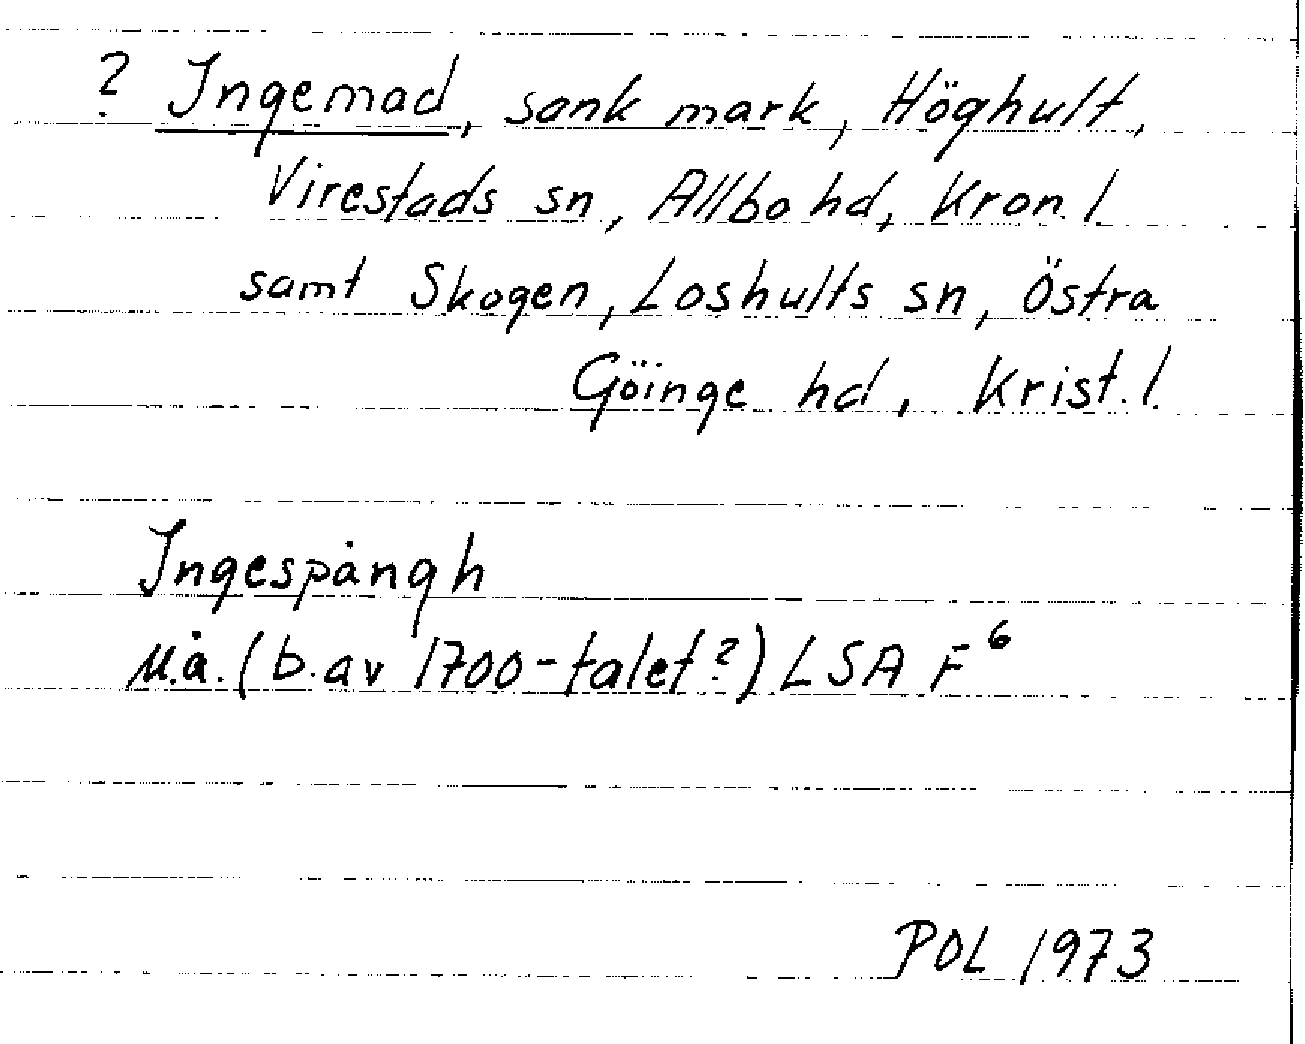 ? Ingemad, sank mark, Höghult,
Virestads sn, Allbo hd, Kron. l.
samt Skogen, Loshults sn, Östra
Göinge hd, Krist. l.
Ingespångh
u.å. (b. av 1700-talet?) LSA F⁶
POL 1973